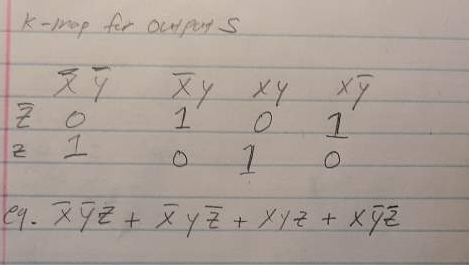 K-map for output S
X̅ Y̅ X̅ y x y x y̅
Z̅ 0 1 0 1
z 1 0 1 0
eq. X̅ y̅ z + X̅ y z̅ + x y z + x y̅ z̅